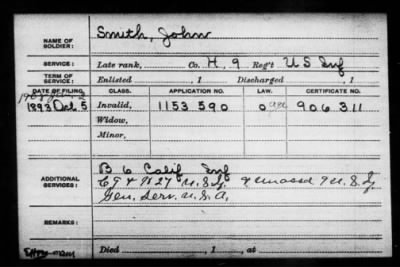 NAME OF SOLDIER: Smith, John
SERVICE: Late rank, Co. H, 9 Reg't U S Inf
TERM OF SERVICE: Enlisted , 1 Discharged , 1
DATE OF FILING. CLASS. APPLICATION NO. LAW. CERTIFICATE NO.
1893 Oct. 5 Invalid, 1153590 906311
Widow,
Minor,
ADDITIONAL SERVICES:
B 6 Calif Inf
U.S.I. U.S.I.
Gen. Serv. U.S.A.
REMARKS:
Died , 1 , at